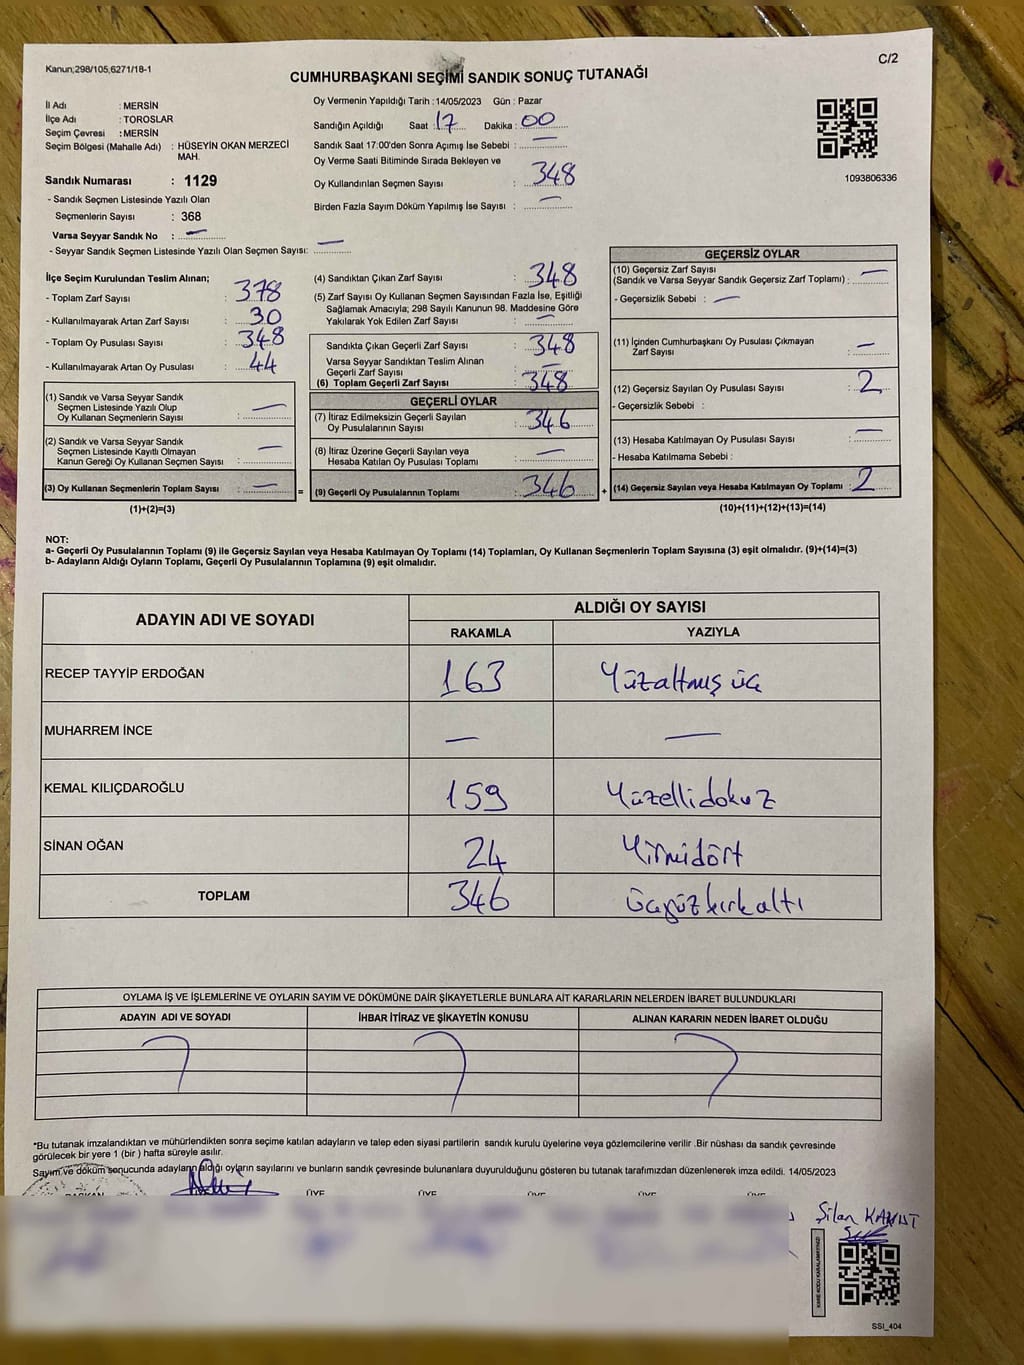 Kanun;298/105,6271/18-1
C/2
CUMHURBAŞKANI SEÇİMİ SANDIK SONUÇ TUTANAĞI
İl Adı : MERSİN
İlçe Adı : TOROSLAR
Seçim Çevresi : MERSİN
Seçim Bölgesi (Mahalle Adı) : HÜSEYİN OKAN MERZECİ MAH.
Sandık Numarası : 1129
- Sandık Seçmen Listesinde Yazılı Olan
Seçmenlerin Sayısı : 368
Varsa Seyyar Sandık No : —
- Seyyar Sandık Seçmen Listesinde Yazılı Olan Seçmen Sayısı: —
Oy Vermenin Yapıldığı Tarih : 14/05/2023 Gün : Pazar
Sandığın Açıldığı Saat : 17 Dakika : 00
Sandık Saat 17:00'den Sonra Açımış İse Sebebi : —
Oy Verme Saati Bitiminde Sırada Bekleyen ve
Oy Kullandırılan Seçmen Sayısı : 348
Birden Fazla Sayım Döküm Yapılmış İse Sayısı : —
1093806336
İlçe Seçim Kurulundan Teslim Alınan;
- Toplam Zarf Sayısı : 378
- Kullanılmayarak Artan Zarf Sayısı : 30
- Toplam Oy Pusulası Sayısı : 348
- Kullanılmayarak Artan Oy Pusulası : 44
(1) Sandık ve Varsa Seyyar Sandık
Seçmen Listesinde Yazılı Olup
Oy Kullanan Seçmenlerin Sayısı : —
(2) Sandık ve Varsa Seyyar Sandık
Seçmen Listesinde Kayıtlı Olmayan
Kanun Gereği Oy Kullanan Seçmen Sayısı : —
(3) Oy Kullanan Seçmenlerin Toplam Sayısı : —
(1)+(2)=(3)
(4) Sandıktan Çıkan Zarf Sayısı : 348
(5) Zarf Sayısı Oy Kullanan Seçmen Sayısından Fazla İse, Eşitliği
Sağlamak Amacıyla; 298 Sayılı Kanunun 98. Maddesine Göre
Yakılarak Yok Edilen Zarf Sayısı : —
Sandıkta Çıkan Geçerli Zarf Sayısı : 348
Varsa Seyyar Sandıktan Teslim Alınan
Geçerli Zarf Sayısı : —
(6) Toplam Geçerli Zarf Sayısı : 348
GEÇERLİ OYLAR
(7) İtiraz Edilmeksizin Geçerli Sayılan
Oy Pusulalarının Sayısı : 346
(8) İtiraz Üzerine Geçerli Sayılan veya
Hesaba Katılan Oy Pusulası Toplamı : —
= (9) Geçerli Oy Pusulalarının Toplamı : 346 +
GEÇERSİZ OYLAR
(10) Geçersiz Zarf Sayısı
(Sandık ve Varsa Seyyar Sandık Geçersiz Zarf Toplamı) : —
- Geçersizlik Sebebi : —
(11) İçinden Cumhurbaşkanı Oy Pusulası Çıkmayan
Zarf Sayısı : —
(12) Geçersiz Sayılan Oy Pusulası Sayısı : 2
- Geçersizlik Sebebi :
(13) Hesaba Katılmayan Oy Pusulası Sayısı : —
- Hesaba Katılmama Sebebi :
(14) Geçersiz Sayılan veya Hesaba Katılmayan Oy Toplamı : 2
(10)+(11)+(12)+(13)=(14)
NOT:
a- Geçerli Oy Pusulalarının Toplamı (9) ile Geçersiz Sayılan veya Hesaba Katılmayan Oy Toplamı (14) Toplamları, Oy Kullanan Seçmenlerin Toplam Sayısına (3) eşit olmalıdır. (9)+(14)=(3)
b- Adayların Aldığı Oyların Toplamı, Geçerli Oy Pusulalarının Toplamına (9) eşit olmalıdır.
ADAYIN ADI VE SOYADI
ALDIĞI OY SAYISI
RAKAMLA YAZIYLA
RECEP TAYYİP ERDOĞAN 163 Yüzaltmış üç
MUHARREM İNCE — —
KEMAL KILIÇDAROĞLU 159 Yüzellidokuz
SİNAN OĞAN 24 Yirmidört
TOPLAM 346 üçyüzkırkaltı
OYLAMA İŞ VE İŞLEMLERİNE VE OYLARIN SAYIM VE DÖKÜMÜNE DAİR ŞİKAYETLERLE BUNLARA AİT KARARLARIN NELERDEN İBARET BULUNDUKLARI
ADAYIN ADI VE SOYADI İHBAR İTİRAZ VE ŞİKAYETİN KONUSU ALINAN KARARIN NEDEN İBARET OLDUĞU
*Bu tutanak imzalandıktan ve mühürlendikten sonra seçime katılan adayların ve talep eden siyasi partilerin sandık kurulu üyelerine veya gözlemcilerine verilir .Bir nüshası da sandık çevresinde
görülecek bir yere 1 (bir ) hafta süreyle asılır.
Sayım ve döküm sonucunda adayların aldığı oyların sayılarını ve bunların sandık çevresinde bulunanlara duyurulduğunu gösteren bu tutanak tarafımızdan düzenlenerek imza edildi. 14/05/2023
BAŞKAN ÜYE ÜYE ÜYE ÜYE ÜYE
Şilan
KARE KODU KARALAMAYINIZ!
SSI_404